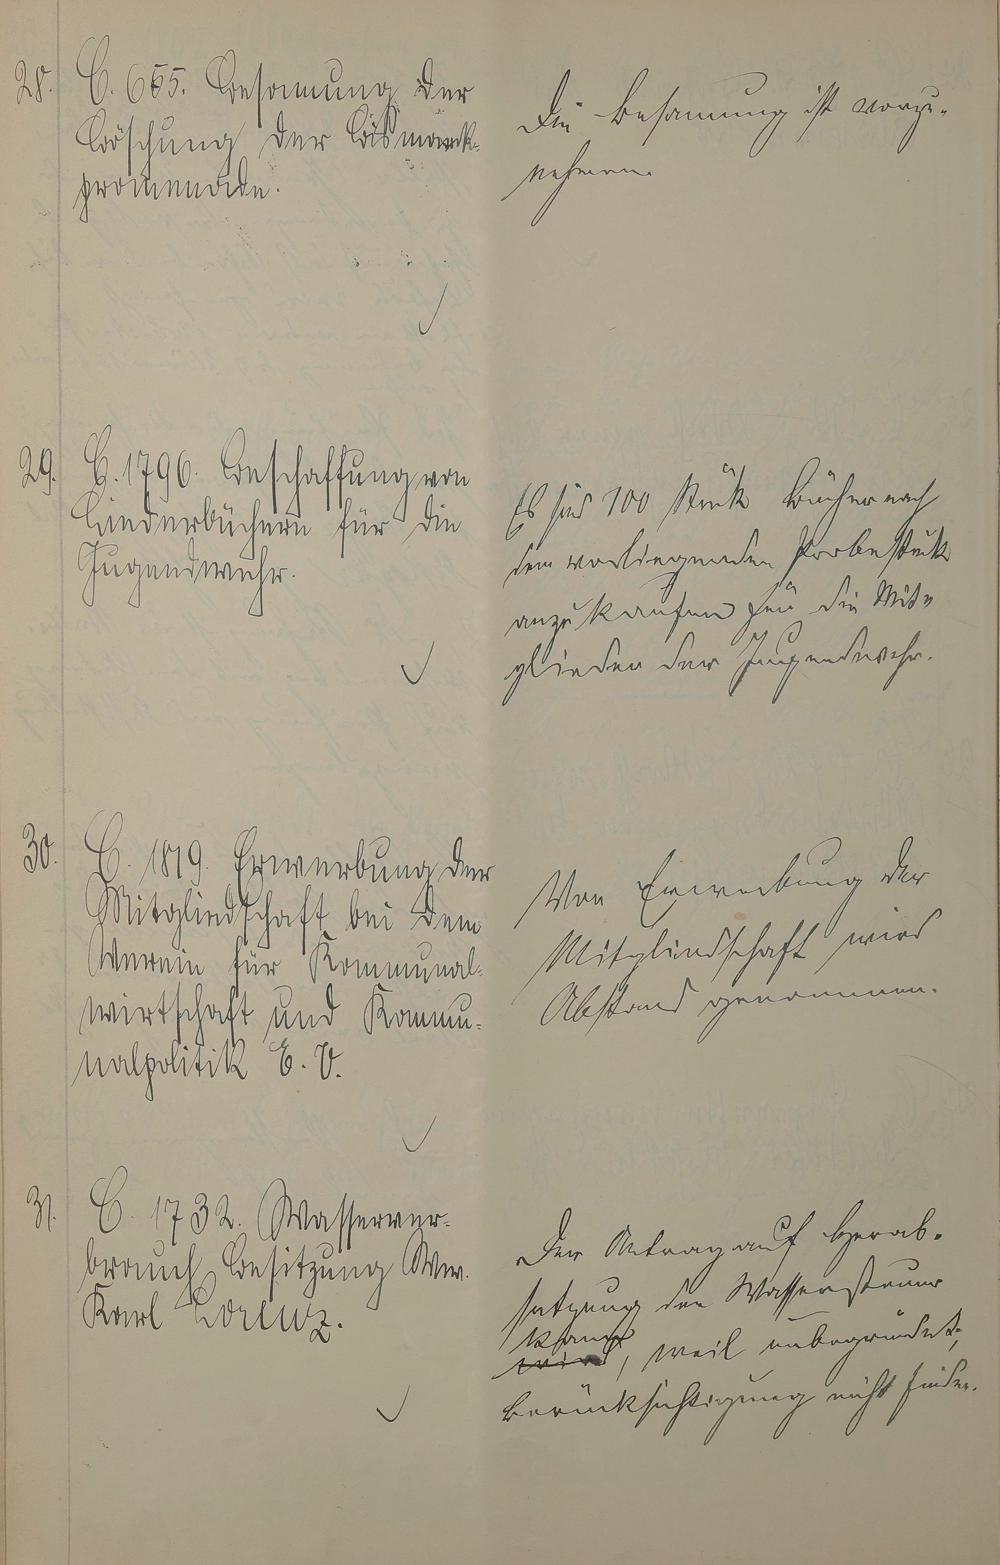 28.
C. 665. Besamung der
Böschung der Bismarck-
promenade.
Die Besamung ist vorzu-
nehmen.
29.
C. 1796. Beschaffung von
Liederbüchern für die
Jugendwehr.
Es sind 100 Stück Bücher nach
dem vorliegenden Probestück
anzukaufen für die Mit-
glieder der Jugendwehr.
30.
C. 1819. Erwerbung der
Mitgliedschaft bei dem
Verein für Kommunal-
wirtschaft und Kommu-
nalpolitik E. V.
Von Erwerbung der
Mitgliedschaft wird
Abstand genommen.
31.
C. 1732. Wasserver-
brauch Besitzung Ww.
Karl Lorenz.
Der Antrag auf Herab-
setzung der Wassersteuer
kann
wird, weil unbegründet,
Berücksichtigung nicht finden.